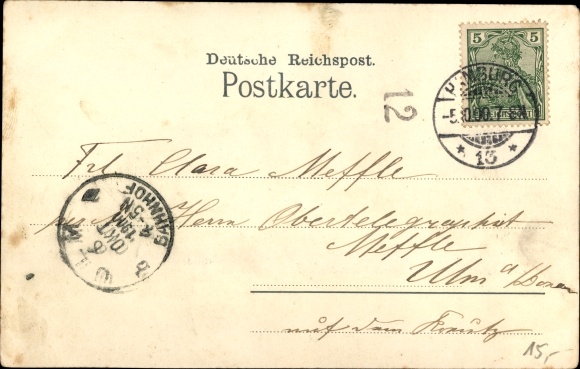 Deutsche Reichspost.
Postkarte.
5
HAMBURG
-5.10.00.7-8N.
* 13 *
12
Frl. Clara Meffle
Herrn Obertelegraphist
Meffle
Ulm a/Donau
auf dem Kreutz
ULM
BAHNHOF
4-5N
1900
OKT
6
15,-